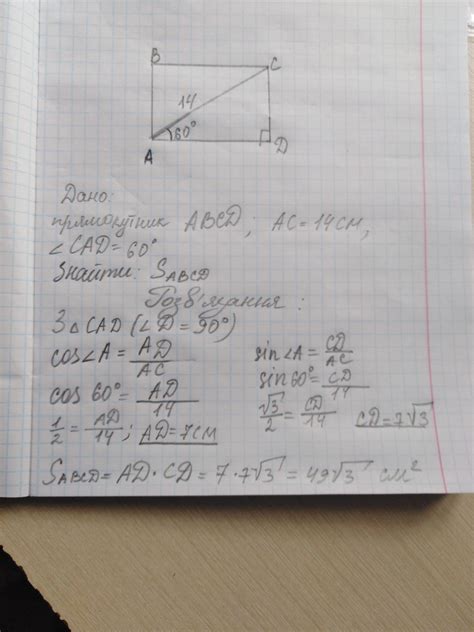 B
C
14
60°
A
D
Дано:
прямокутник ABCD; AC=14см,
∠CAD=60°
Знайти: S_ABCD
Розв'язання:
З △ CAD (∠D=90°)
cos∠A = AD/AC
sin∠A = CD/AC
cos 60° = AD/14
sin 60° = CD/14
1/2 = AD/14; AD=7см
√3/2 = CD/14 CD=7√3
S_ABCD = AD · CD = 7 · 7√3 = 49√3 см²